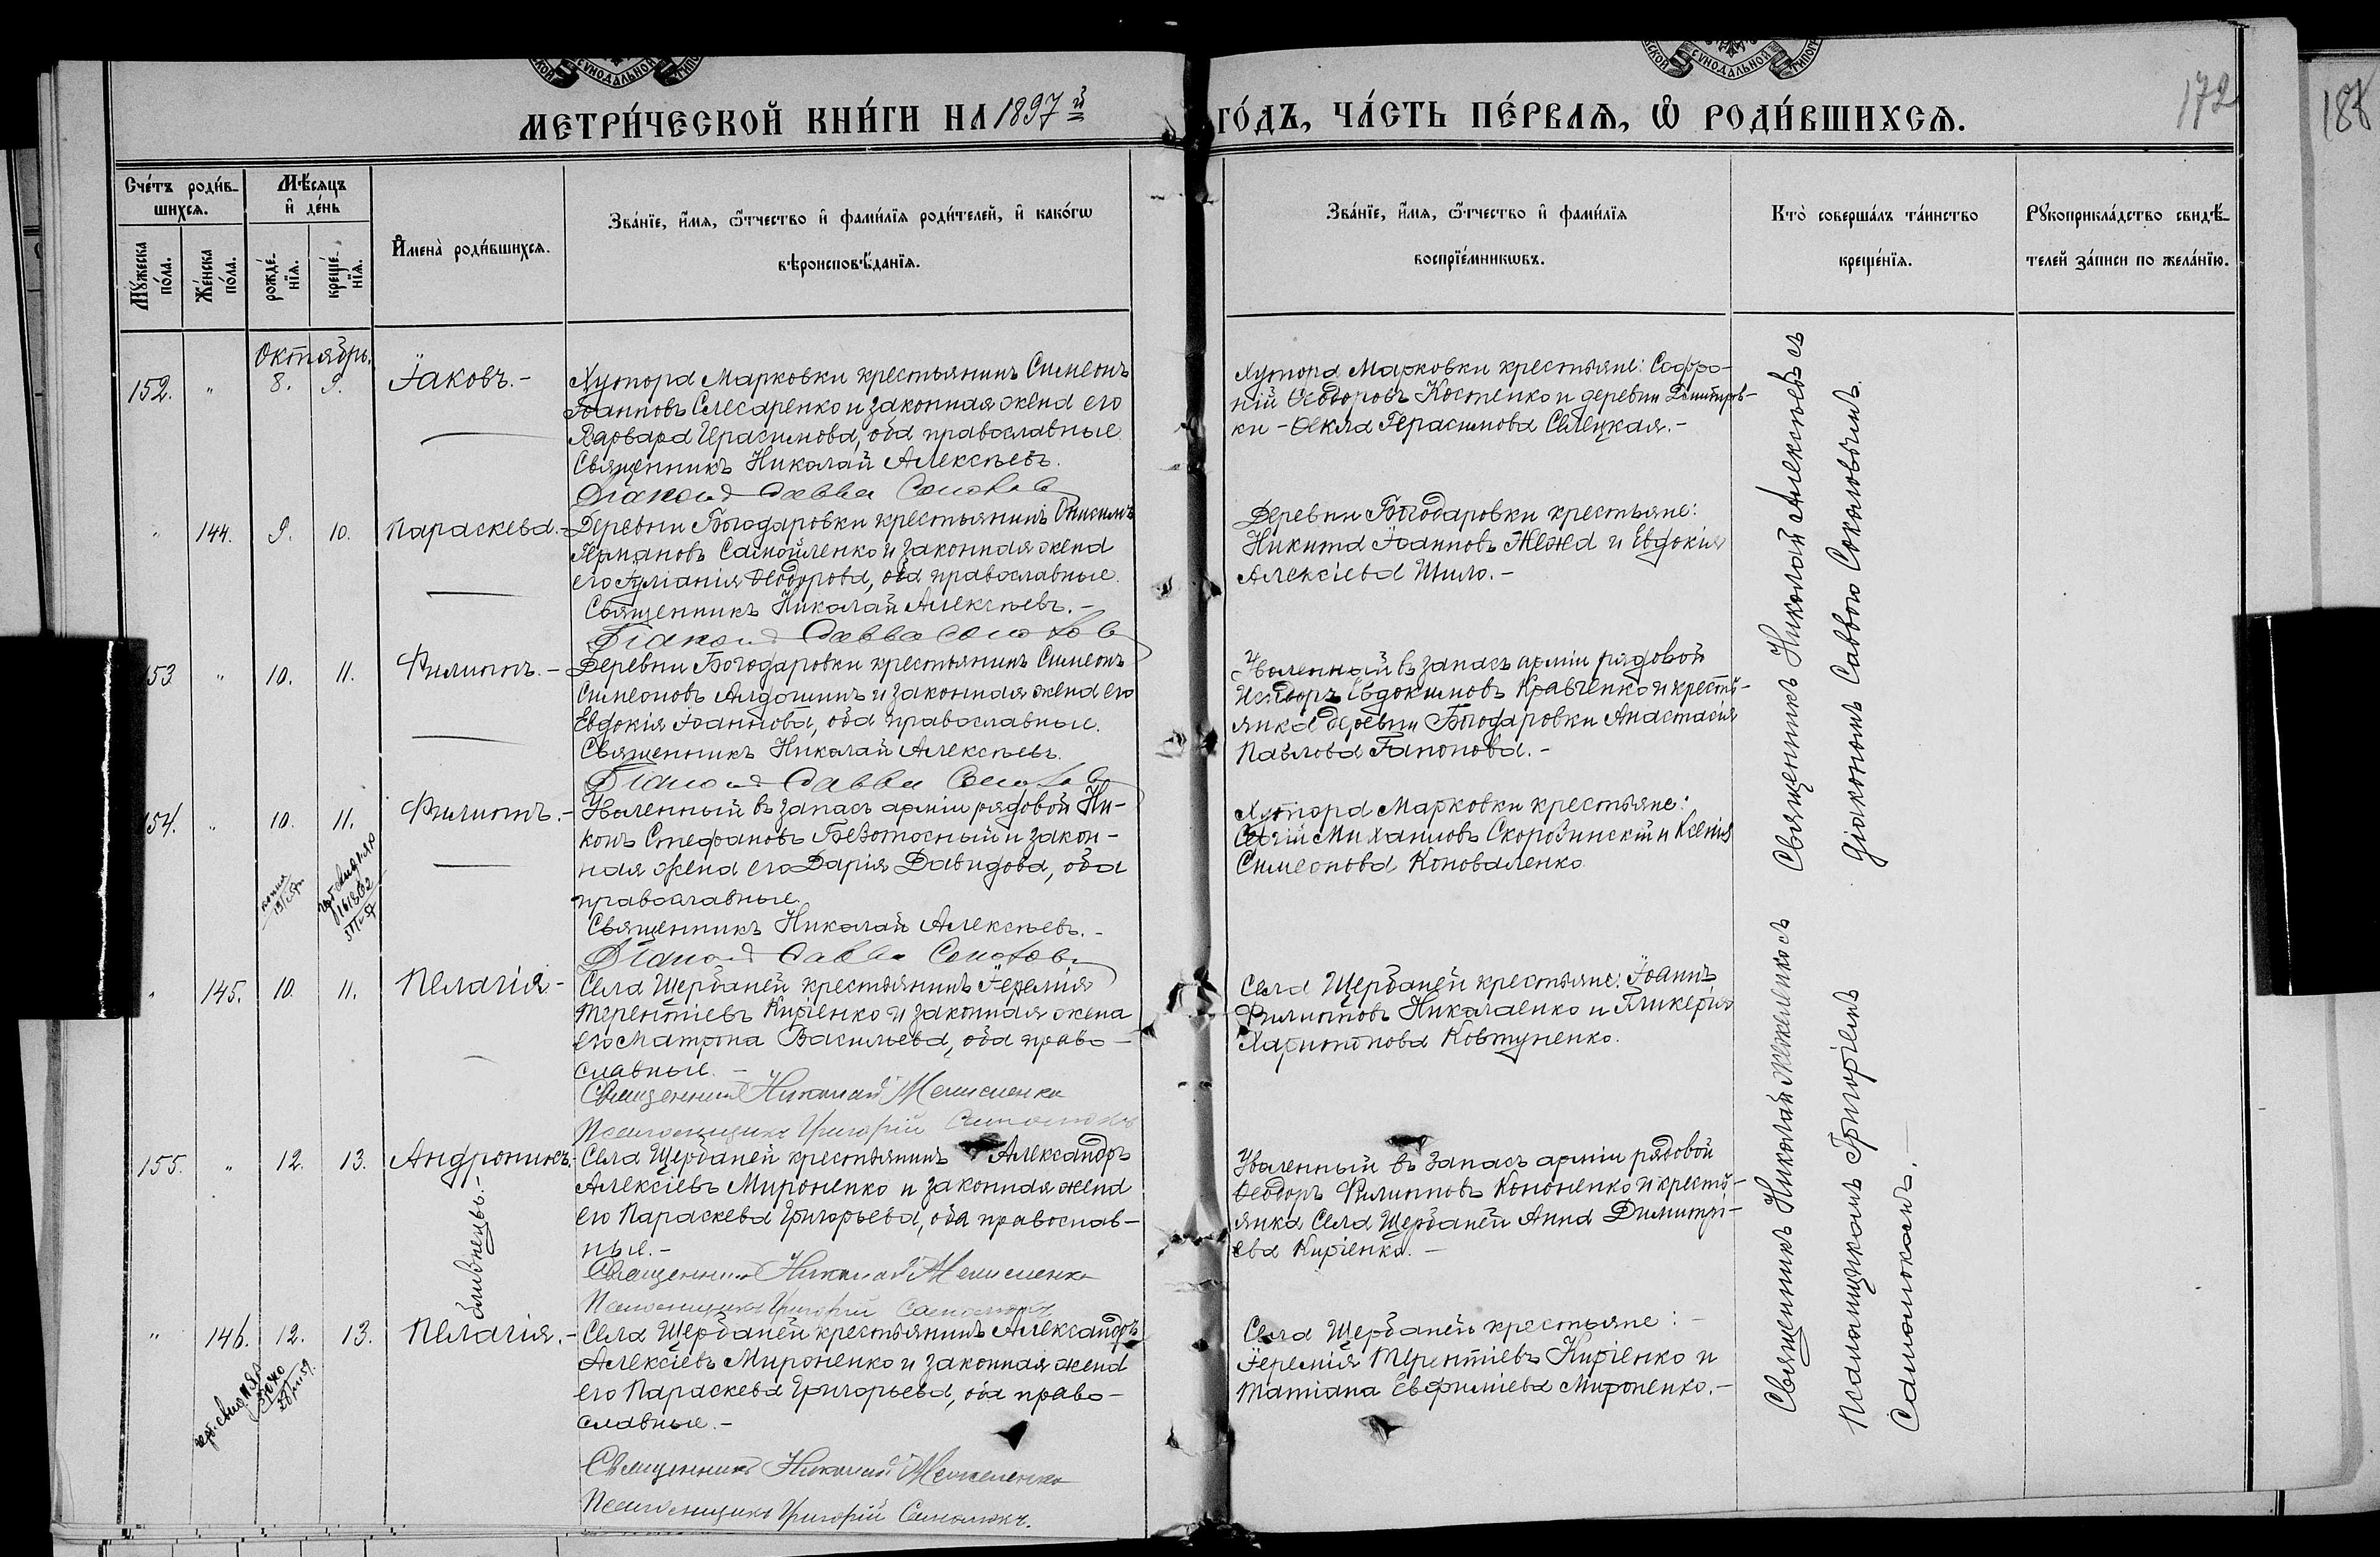 СѴНОДАЛЬНОЙ
СѴНОДАЛЬНОЙ
МЕТРИ́ЧЕСКОЙ КНИ́ГИ НА 1897й
ГО́ДЪ, ЧА́СТЬ ПЕ́РВАѦ, Ѡ҆ РОДИ́ВШИХСѦ.
172
Сче́тъ роди́в-
шихсѧ.
Мѣ́сѧцъ
и҆ де́нь
И҆мена̀ роди́вшихсѧ.
Зва́нїе, и҆́мѧ, ѻ҆́тчество и҆ фами́лїѧ роди́телей, и҆ како́гѡ
вѣроисповѣ́данїѧ.
Мꙋ́жеска
по́ла.
Же́нска
по́ла.
рожде́-
нїѧ.
креще́-
нїѧ.
Зва́нїе, и҆́мѧ, ѻ҆́тчество и҆ фами́лїѧ
воспрїе́мникѡвъ.
Кто̀ соверша́лъ та́инство
креще́нїѧ.
Рꙋкоприкла́дство свидѣ́-
телей за́писи по жела́нїю.
Октябрь.
152. " 8. 9. Іаковъ.-
Хутора Марковки крестьянинъ Симеонъ
Іоанновъ Слесаренко и законная жена его
Варвара Герасимова, оба православные
Священникъ Николай Алексѣевъ.
Діаконъ Савва Соколов
Хутора Марковки крестьяне: Софро-
ній Ѳеодоровъ Костенко и деревни Димитров-
ки - Ѳекла Герасимова Селецкая.-
" 144. 9. 10. Параскева.-
Деревни Богодаровки крестьянинъ Онисимъ
Германовъ Самойленко и законная жена
его Іуліанія Ѳеодорова, оба православные.
Священникъ Николай Алексѣевъ.-
Діаконъ Савва Соколов
Деревни Богодаровки крестьяне:
Никита Іоанновъ Жежа и Евдокія
Алексіева Шило.-
153 " 10. 11. Филиппъ.-
Деревни Богодаровки крестьянинъ Симеонъ
Симеоновъ Алдошинъ и законная жена его
Евдокія Іоаннова, оба православные.
Священникъ Николай Алексѣевъ.
Діаконъ Савва Соколов
Уволенный въ запасъ арміи рядовой
Исидоръ Евдокимовъ Кравченко и кресть-
янка деревни Богодаровки Анастасія
Павлова Гапонова.-
154. " 10. 11. Филиппъ.-
Уволенный въ запасъ арміи рядовой Ни-
конъ Стефановъ Безотосный и закон-
ная жена его Дарія Давидова, оба
православные.
Священникъ Николай Алексѣевъ.-
Діаконъ Савва Соколов
Хутора Марковки крестьяне:
Сергій Михаиловъ Скорозинскій и Ксенія
Симеонова Коноваленко
" 145. 10. 11. Пелагія-
Села Щербаней крестьянинъ Іеремія
Терентіевъ Киріенко и законная жена
его Матрона Васильева, оба право-
славные.-
Священникъ Николай Межеленко
Псаломщикъ Григорій Самолюкъ
Села Щербаней крестьяне: Іоаннъ
Филипповъ Николаенко и Гликерія
Харитонова Ковтуненко.
155. " 12. 13. Андроникъ.-
близнецы.-
Села Щербаней крестьянинъ Александръ
Алексіевъ Мироненко и законная жена
его Параскева Григорьева, оба православ-
ные.-
Священникъ Николай Межеленко
Псаломщикъ Григорій Самолюкъ
Уволенный въ запасъ арміи рядовой
Ѳеодоръ Филипповъ Кононенко и кресть-
янка Села Щербаней Анна Димитрі-
ева Киріенко.-
" 146. 12. 13. Пелагія.-
Села Щербаней крестьянинъ Александръ
Алексіевъ Мироненко и законная жена
его Параскева Григорьева, оба право-
славные.-
Священникъ Николай Межеленко
Псаломщикъ Григорій Самолюкъ.
Села Щербаней крестьяне:-
Іеремія Терентіевъ Киріенко и
Татіана Евфиміева Мироненко.-
Священникъ Николай Алексѣевъ съ
діакономъ Саввою Соколовымъ.
Священникъ Николай Межеленко съ
Псаломщикомъ Григоріемъ
Самолюкомъ.-